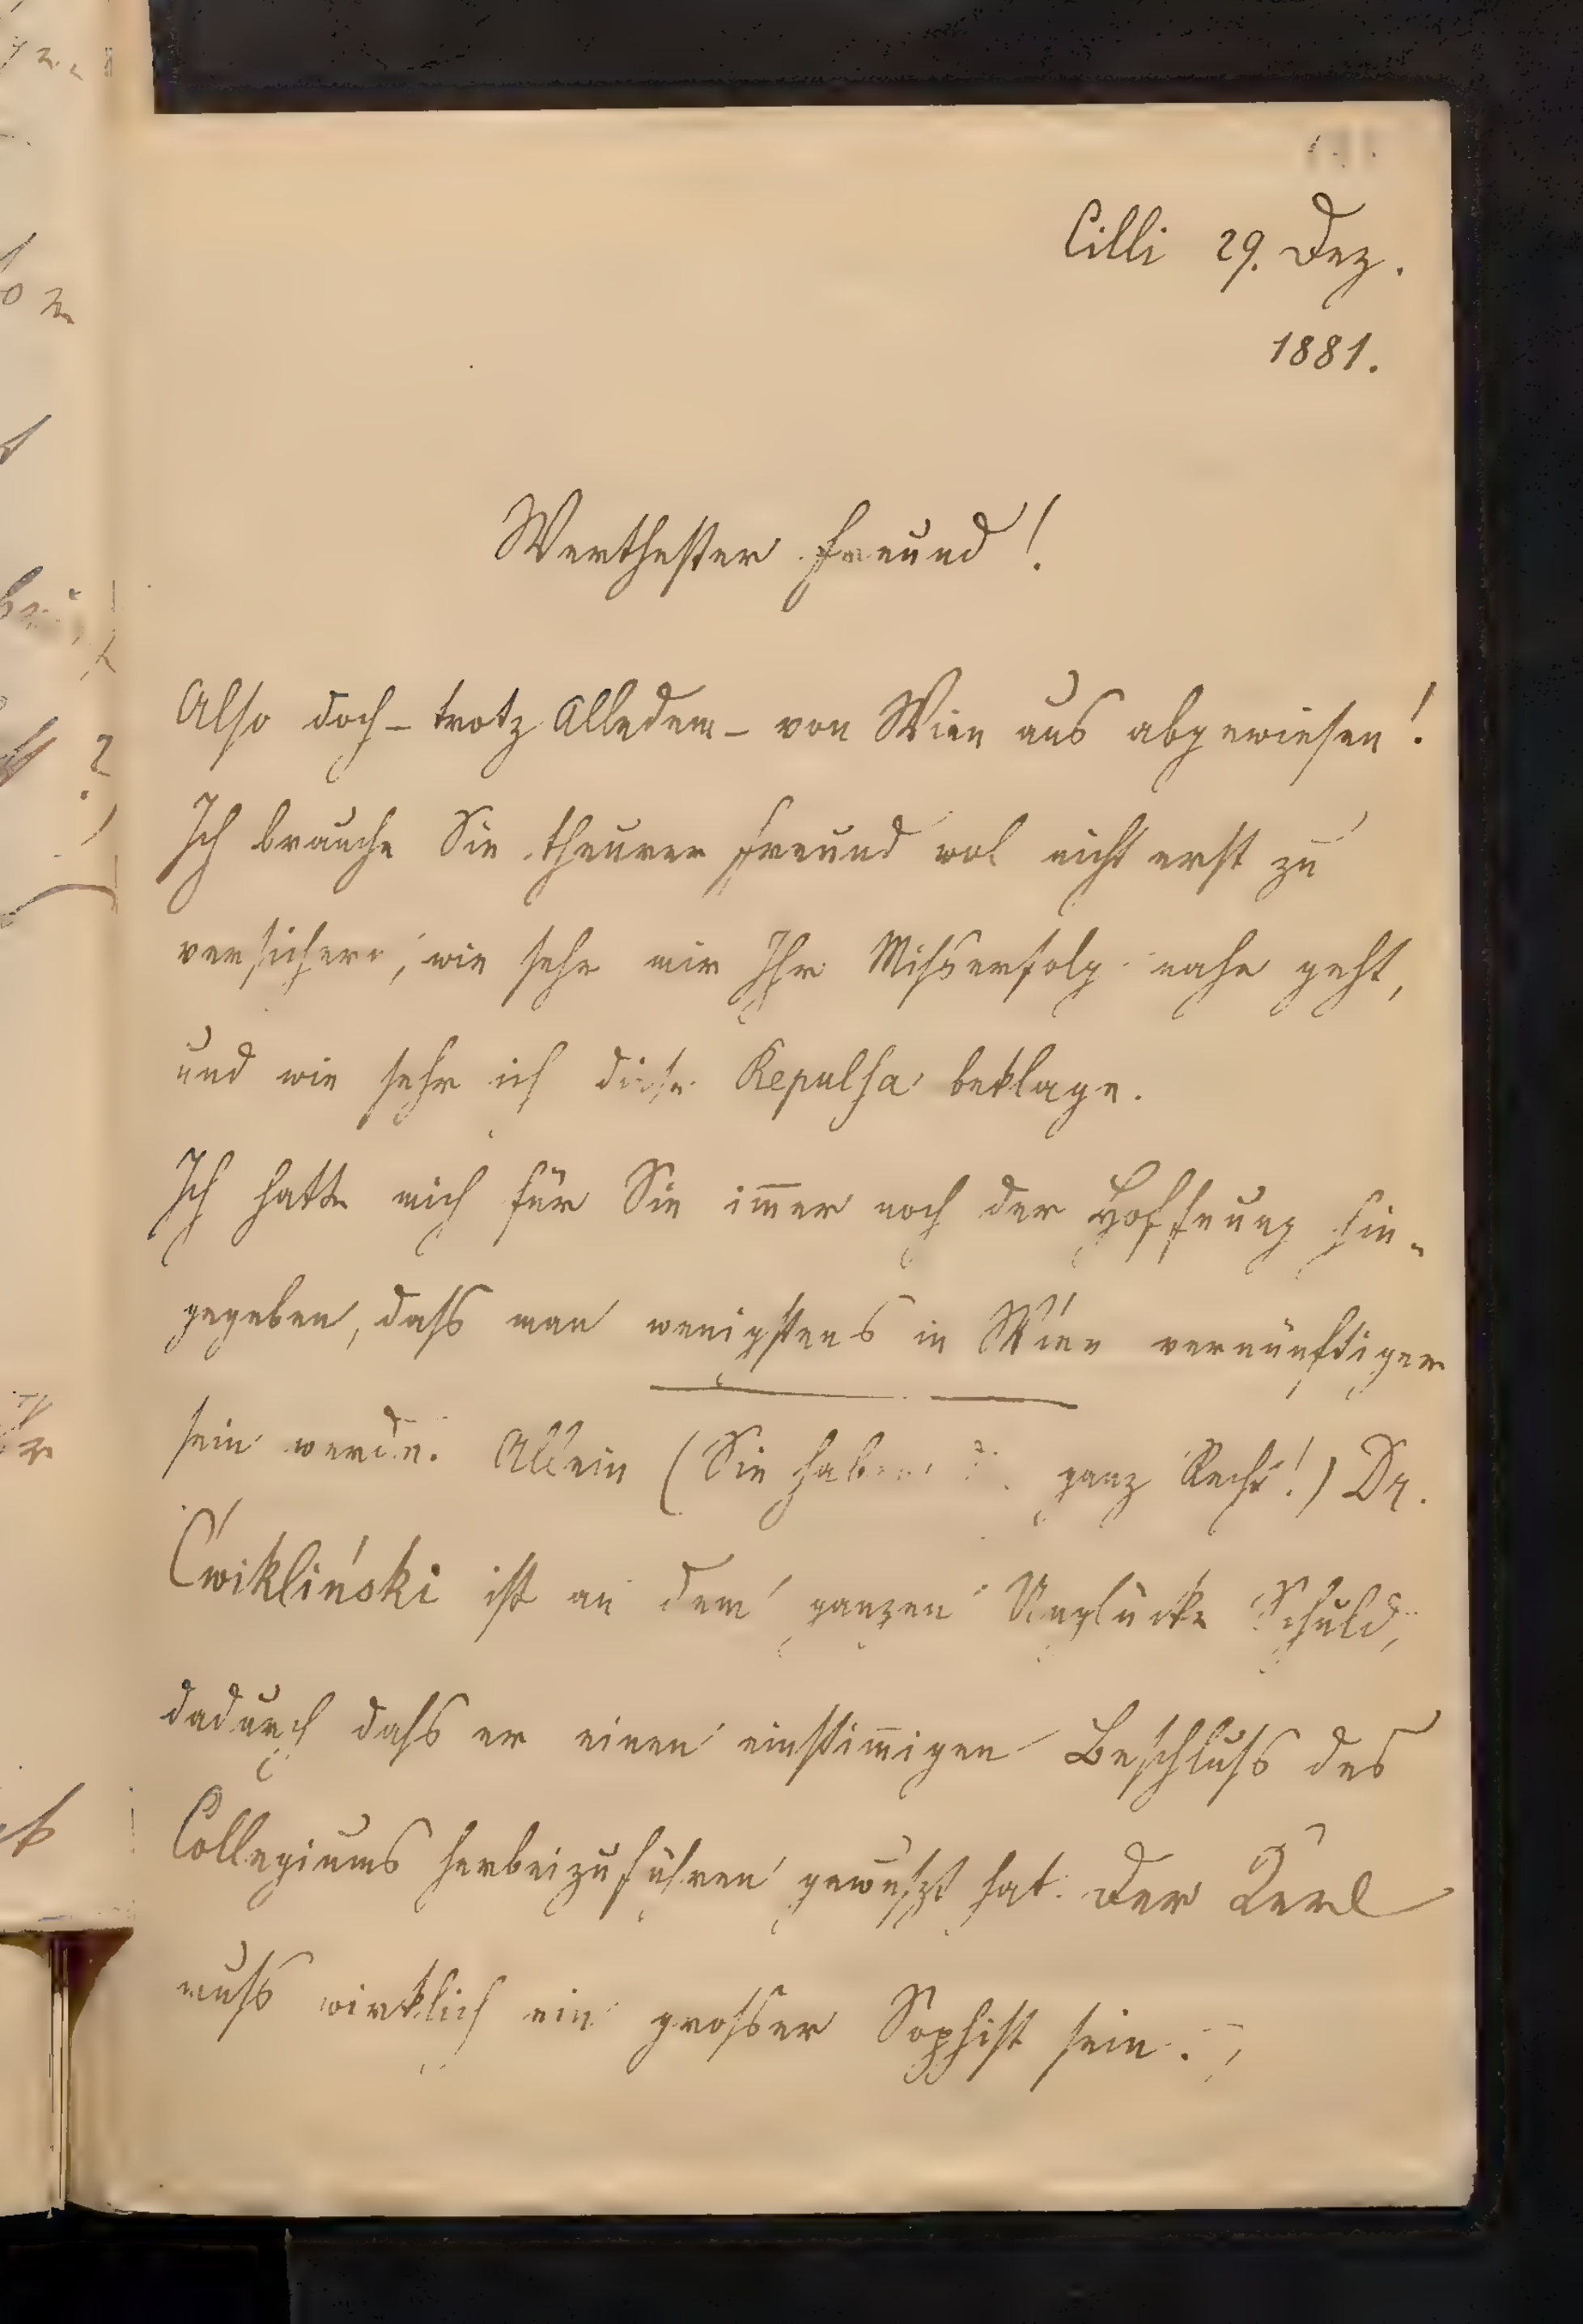 Cilli 29. Dez.
1881.
Werthester Freund!
Also doch – trotz Alledem – von Wien aus abgewiesen!
Ich brauche Sie theurer Freund wol nicht erst zu
versichern, wie sehr mir Ihr Misserfolg nahe geht,
und wie sehr ich diese Repulsa beklage.
Ich hatte mich für Sie im̅er noch der Hoffnung hin-
gegeben, dass man wenigstens in Wien vernünftiger
sein werde. Allein (Sie haben ganz Recht!) Dr.
Ćwikliński ist an dem ganzen Unglücke Schuld,
dadurch dass er einen einstim̅igen Beschluss des
Collegiums herbeizuführen gewusst hat. Der Kerl
muss wirklich ein grosser Sophist sein.